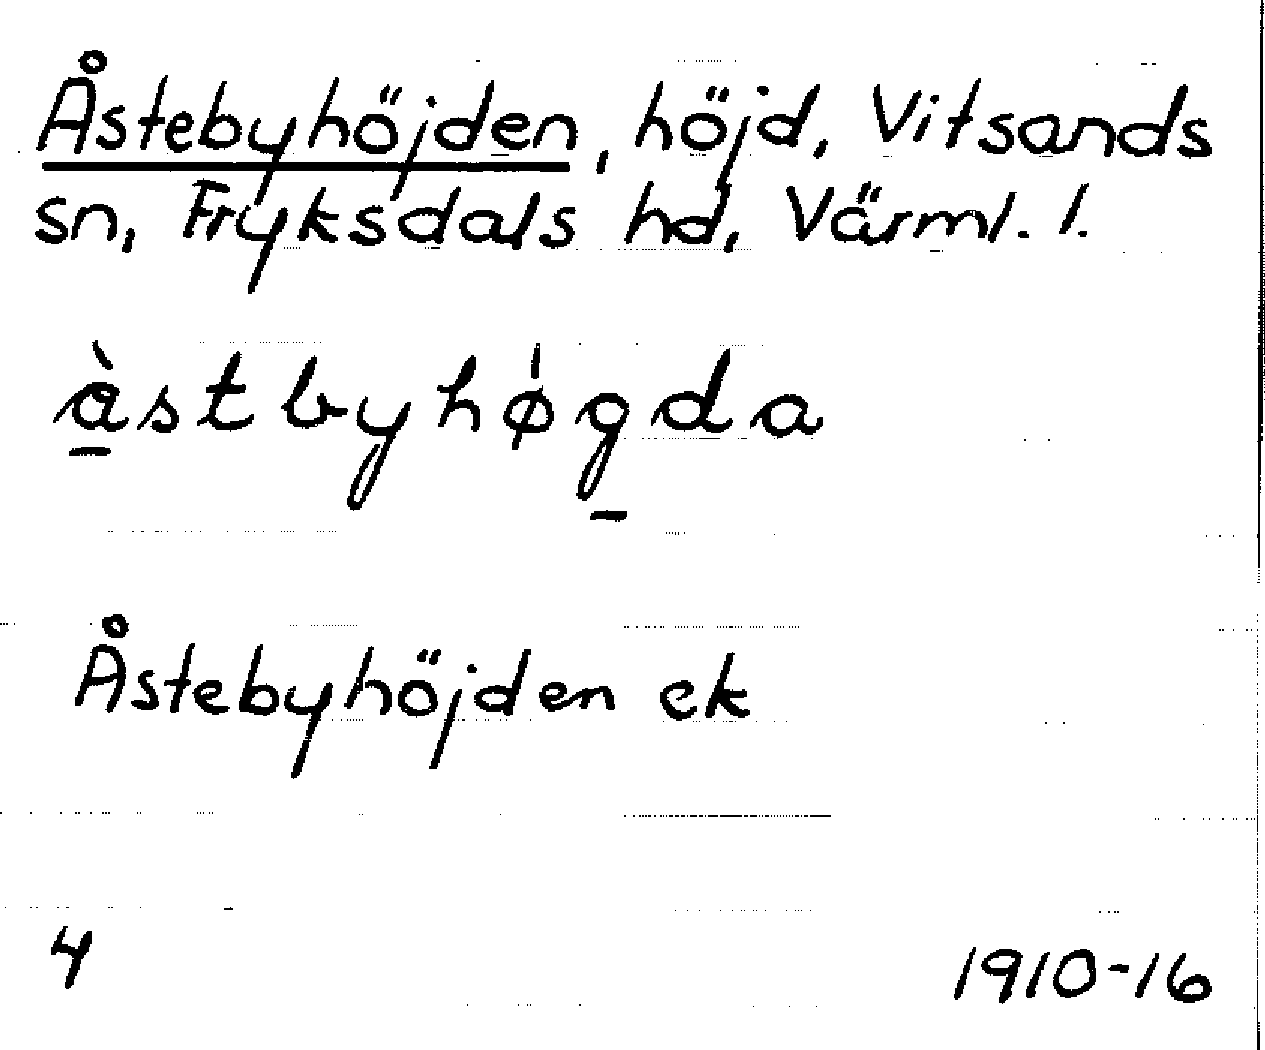 Åstebyhöjden, höjd, Vitsands
sn, Fryksdals hd, Värml. l.
å̲̀stbyhǿg̲da
Åstebyhöjden ek
4 1910-16